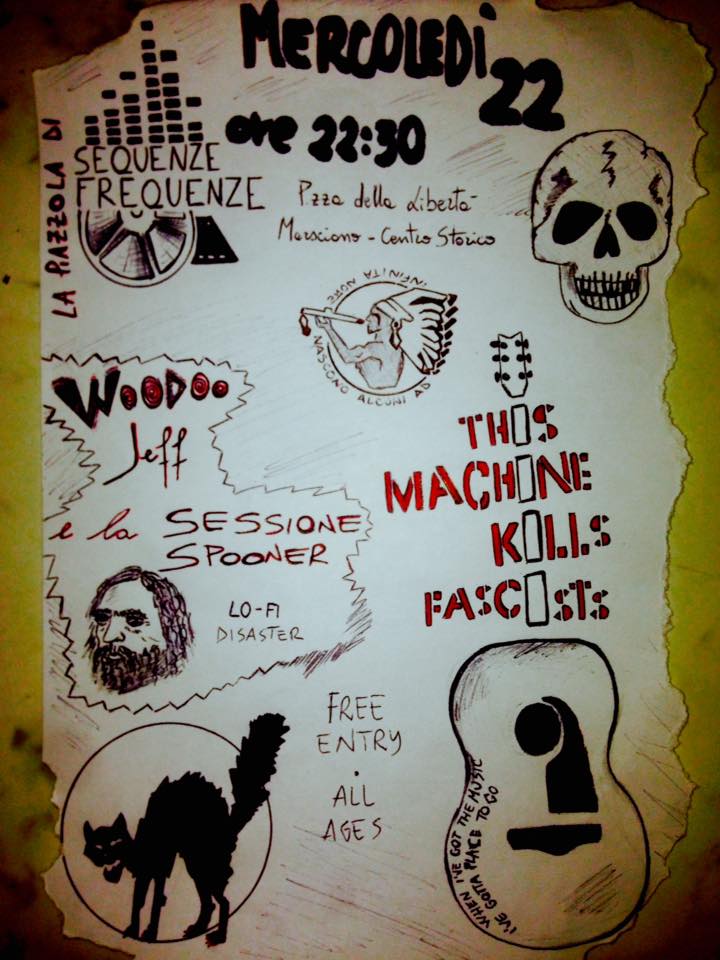 MERCOLEDÌ
22
ore 22:30
LA PIAZZOLA DI
SEQUENZE
FREQUENZE
P.zza della Libertà
Marsciano - Centro Storico
INFINITA NOTTE
NASCONO ALCUNI AD
WOODOO
Jeff
e la SESSIONE
SPOONER
LO-FI
DISASTER
THIS
MACHINE
KILLS
FASCISTS
FREE
ENTRY
.
ALL
AGES
WHEN I'VE GOT THE MUSIC
I'VE GOTTA PLACE TO GO